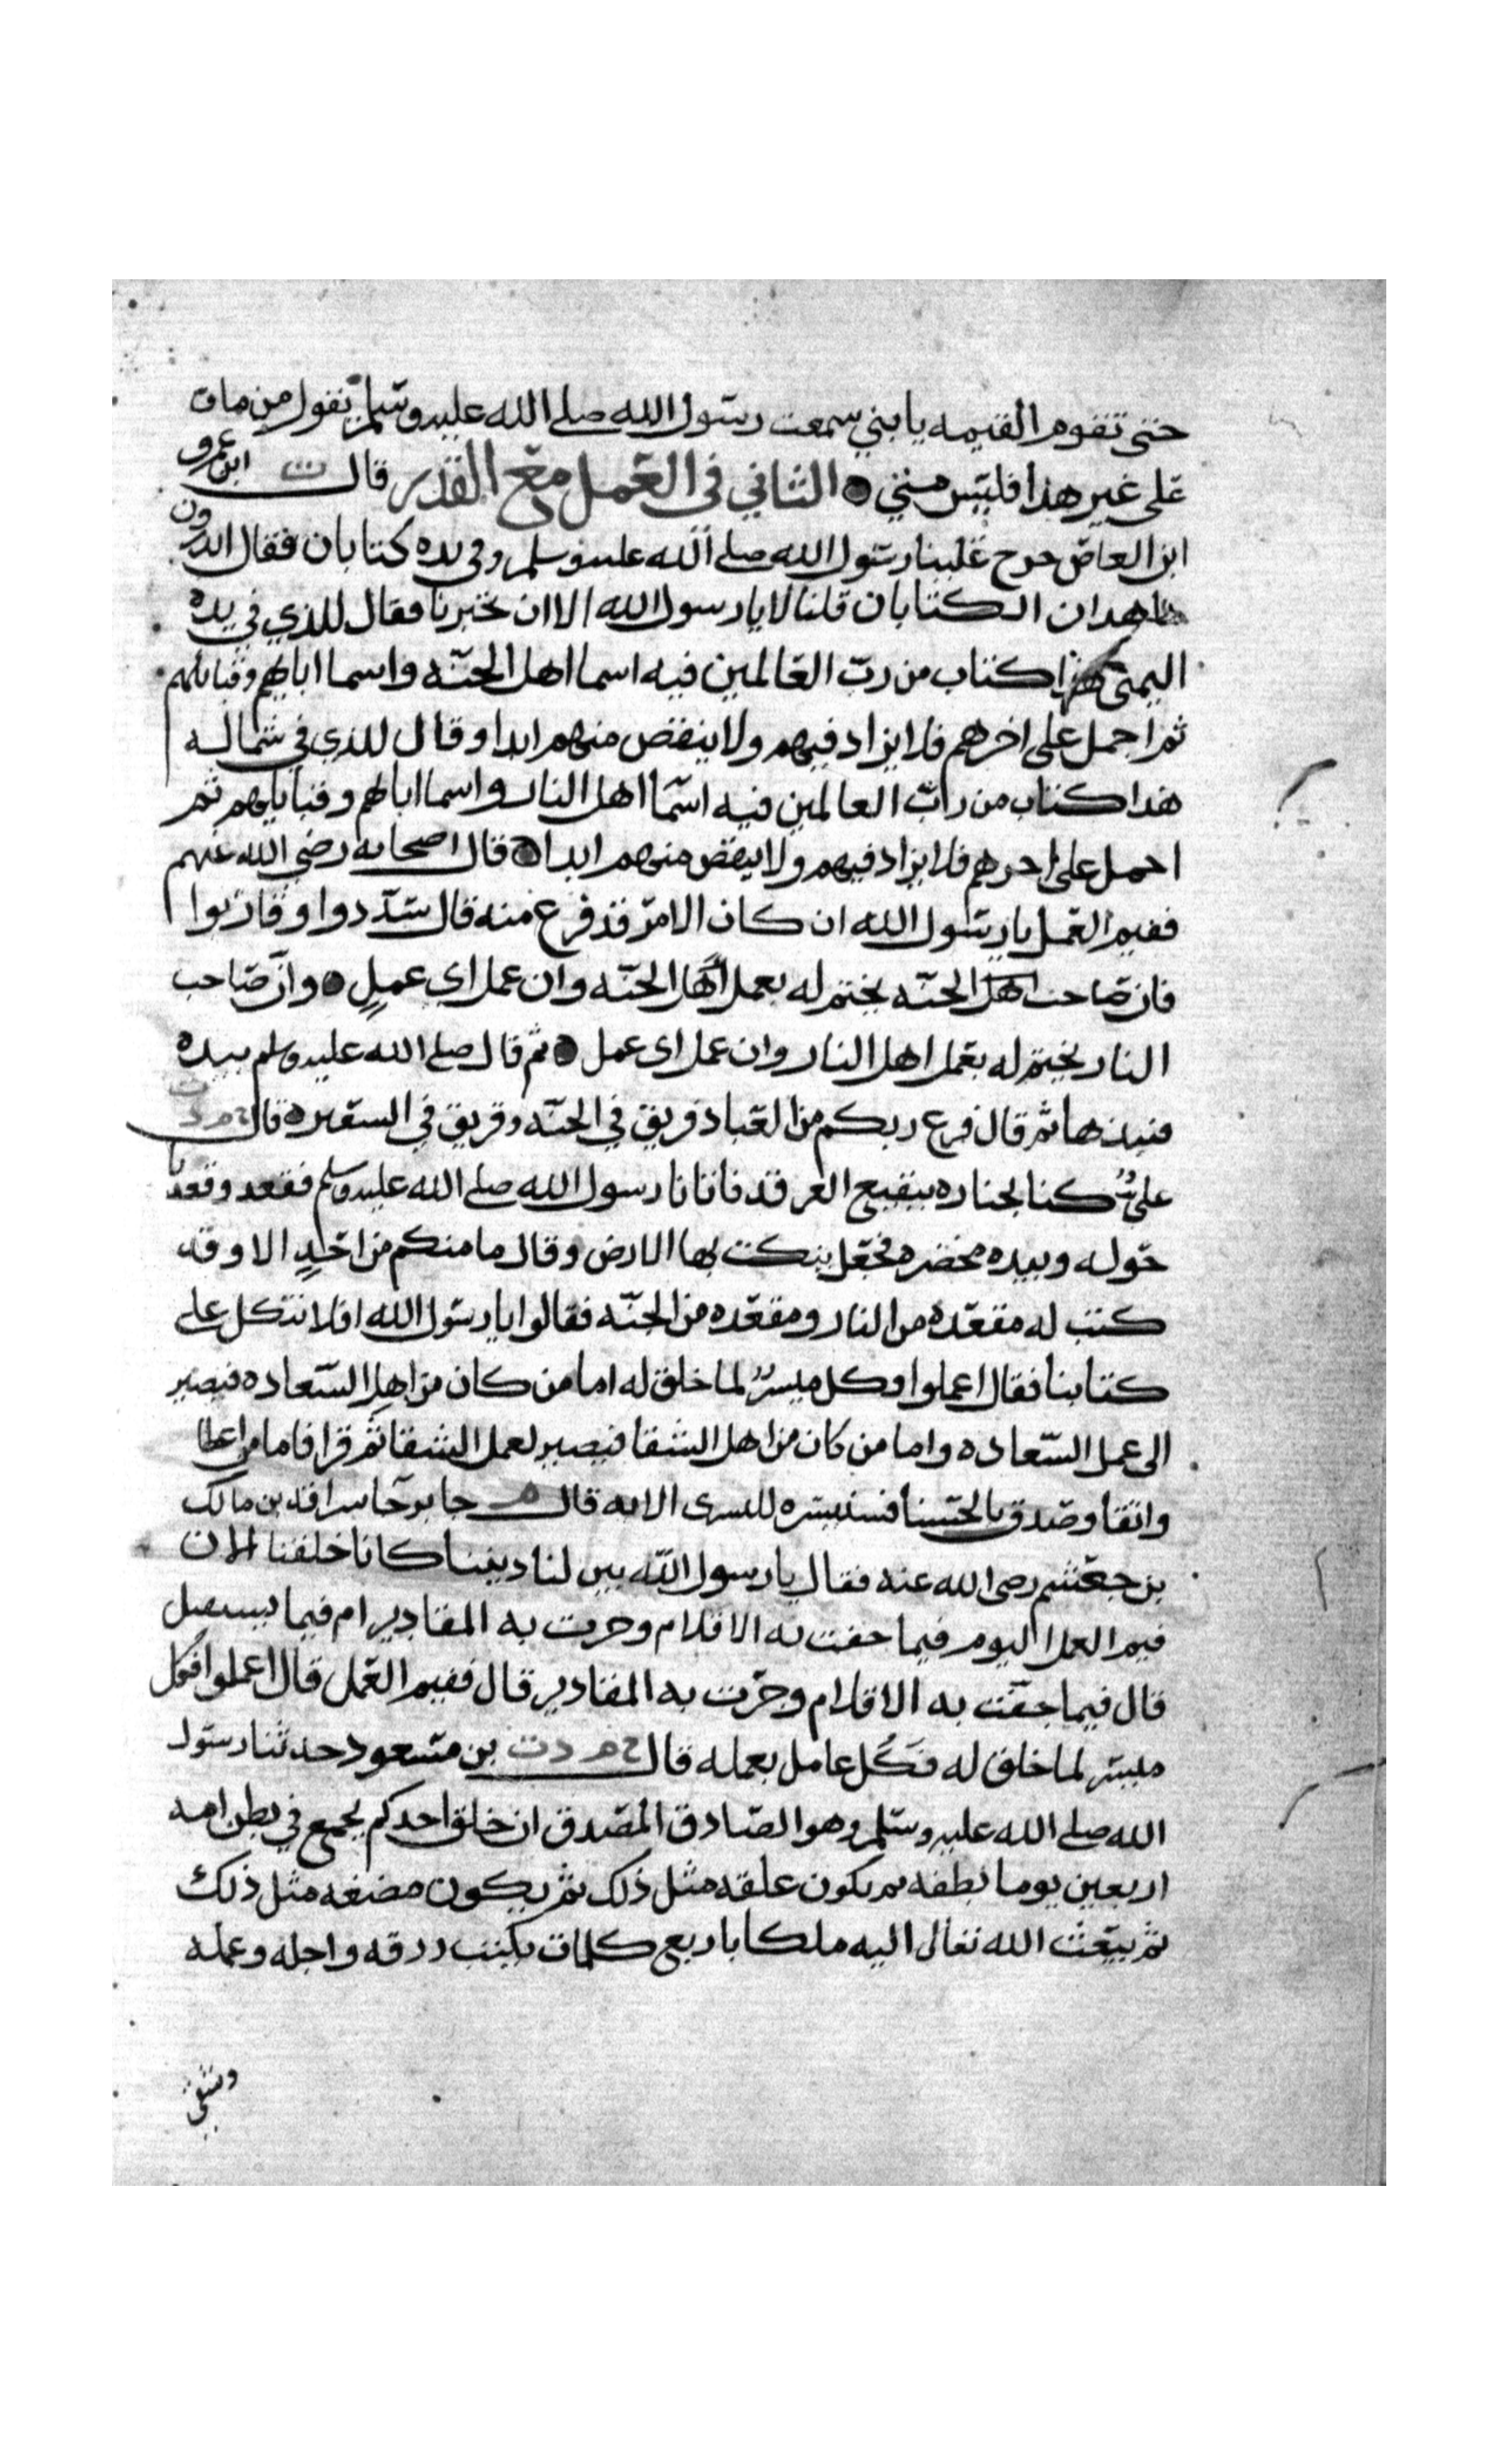 حتى تقوم القيمه يا بني سمعت رسول الله صلى الله عليه وسلم يقول من مات
على غير هذا فليس مني الثاني في العمل مع القدر قال ت ابن عمرو
ابن العاص خرج علينا رسول الله صلى الله عليه وسلم وفي يده كتابان فقال اتدرون
ما هذان الكتابان قلنا لا يا رسول الله الا ان تخبرنا فقال للذي في يده
اليمنى هذا كتاب من رب العالمين فيه اسما اهل الجنه واسما ابايهم وقبائلهم
ثم اجمل على اخرهم فلا يزاد فيهم ولا ينقص منهم ابدا وقال للذي في شماله
هذا كتاب من رب العالمين فيه اسما اهل النار واسما ابايهم وقبايلهم ثم
اجمل على اخرهم فلا يزاد فيهم ولا ينقص منهم ابدا قال اصحابه رضي الله عنهم
ففيم العمل يا رسول الله ان كان الامر قد فرغ منه قال سددوا وقاربوا
فان صاحب اهل الجنه يختم له بعمل اهل الجنه وان عمل اي عمل وان صاحب
النار يختم له بعمل اهل النار وان عمل اي عمل ثم قال صلى الله عليه وسلم بيده
فنبذها ثم قال فرغ ربكم من العباد فريق في الجنه وفريق في السعير قال خ م د ت
علي كنا بجنازه ببقيع الغرقد فاتانا رسول الله صلى الله عليه وسلم فقعد وقعدنا
حوله وبيده مخصره فجعل ينكت بها الارض وقال ما منكم من احد الا وقد
كتب له مقعده من النار ومقعده من الجنه فقالوا يا رسول الله افلا نتكل على
كتابنا فقال اعملوا وكل ميسر لما خلق له اما من كان من اهل السعاده فيصير
الى عمل السعاده واما من كان من اهل الشقا فيصير لعمل الشقا ثم قرا فاما من اعطا
واتقا وصدق بالحسنا فسنيسره لليسرى الايه قال م جابر جا سراقه بن مالك
بن جعشم رضي الله عنه فقال يا رسول الله بين لنا ديننا كانا خلقنا الان
فيم العمل اليوم فيما جفت به الاقلام وجرت به المقادير ام فيما يستقبل
قال فيما جفت به الاقلام وجرت به المقادير قال ففيم العمل قال اعملوا فكل
ميسر لما خلق له فكل عامل بعمله قال خ م د ت بن مسعود حدثنا رسول
الله صلى الله عليه وسلم وهو الصادق المصدق ان خلق احدكم يجمع في بطن امه
اربعين يوما نطفه ثم يكون علقه مثل ذلك ثم يكون مضغه مثل ذلك
ثم يبعث الله تعالى اليه ملكا باربع كلمات بكتب رزقه واجله وعمله
وشقي